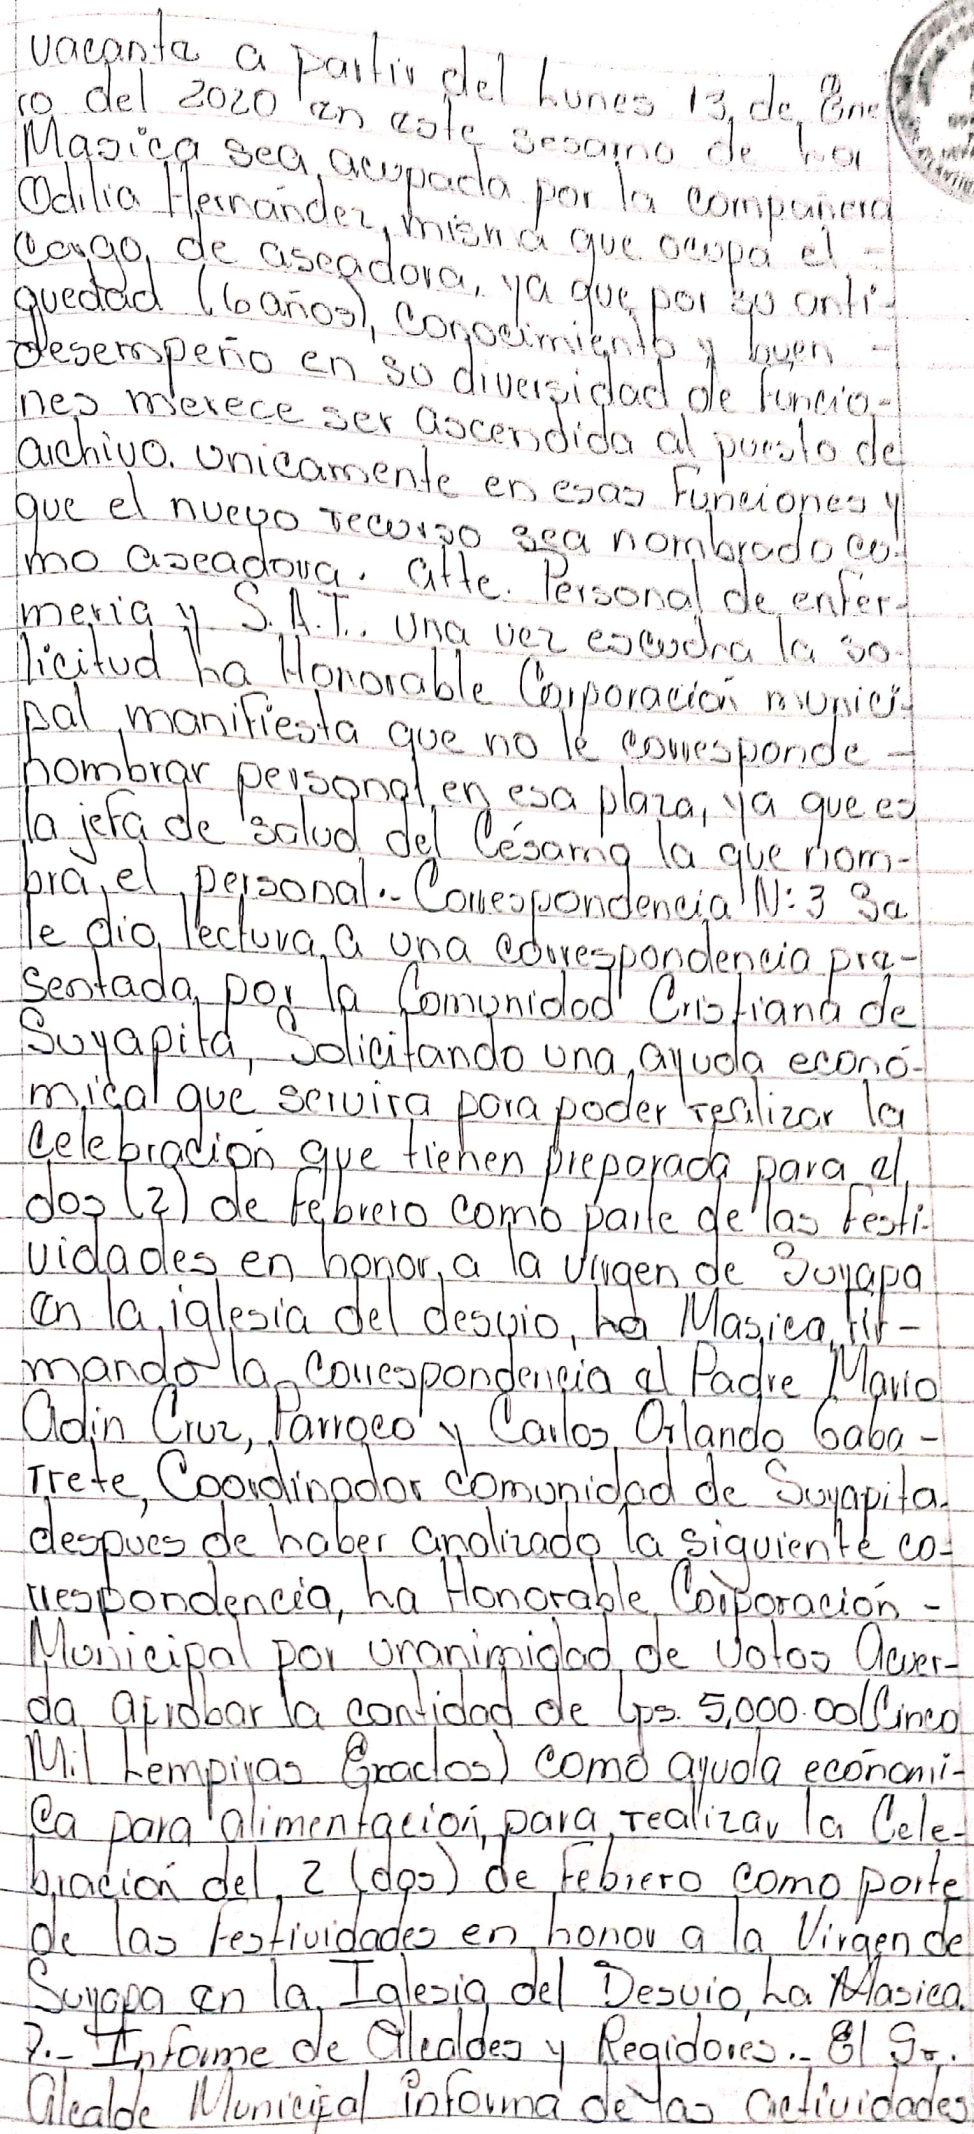 vacante a partir del Lunes 13, de Ene
ro del 2020 en este sesamo de La
Masica sea acupada por la compañera
Odilia Hernández, misma que ocupa el -
cargo de aseadora, ya que por su anti-
guedad (6 años), conocimiento y buen -
desempeño en su diversidad de funcio-
nes merece ser ascendida al puesto de
archivo. unicamente en esas Funciones y
que el nuevo recurso sea nombrado co-
mo aseadora. atte. Personal de enfer-
meria y S.A.T.. una vez escucha la so-
licitud La Honorable Corporación munici-
pal manifiesta que no le corresponde -
nombrar personal en esa plaza, ya que es
la jefa de salud del Césamo la que nom-
bra el personal.- Correspondencia N:3 Se
le dio lectura a una correspondencia pre-
sentada por la Comunidad Cristiana de
Suyapita, Solicitando una ayuda econó-
mica que servira para poder realizar la
celebración que tienen preparada para el
dos (2) de febrero como parte de las festi-
vidades en honor a la virgen de Suyapa
en la iglesia del desvio, La Masica, fir-
mando la correspondencia el Padre Mario
Adin Cruz, Parroco y Carlos Orlando Gaba-
rrete, Coordinador comunidad de Suyapita.
despues de haber analizado la siguiente co-
rrespondencia, La Honorable Corporación -
Municipal por unanimidad de votos Acuer-
da aprobar la cantidad de Lps. 5,000.00 (Cinco
Mil Lempiras Exactos) como ayuda economi-
ca para alimentación, para realizar la Cele-
bración del 2 (dos) de Febrero como parte
de las Festividades en honor a la Virgen de
Suyapa en la Iglesia del Desvio, La Masica.
7.- Informe de Alcaldes y Regidores.- El Sr.
Alcalde Municipal informa de las actividades